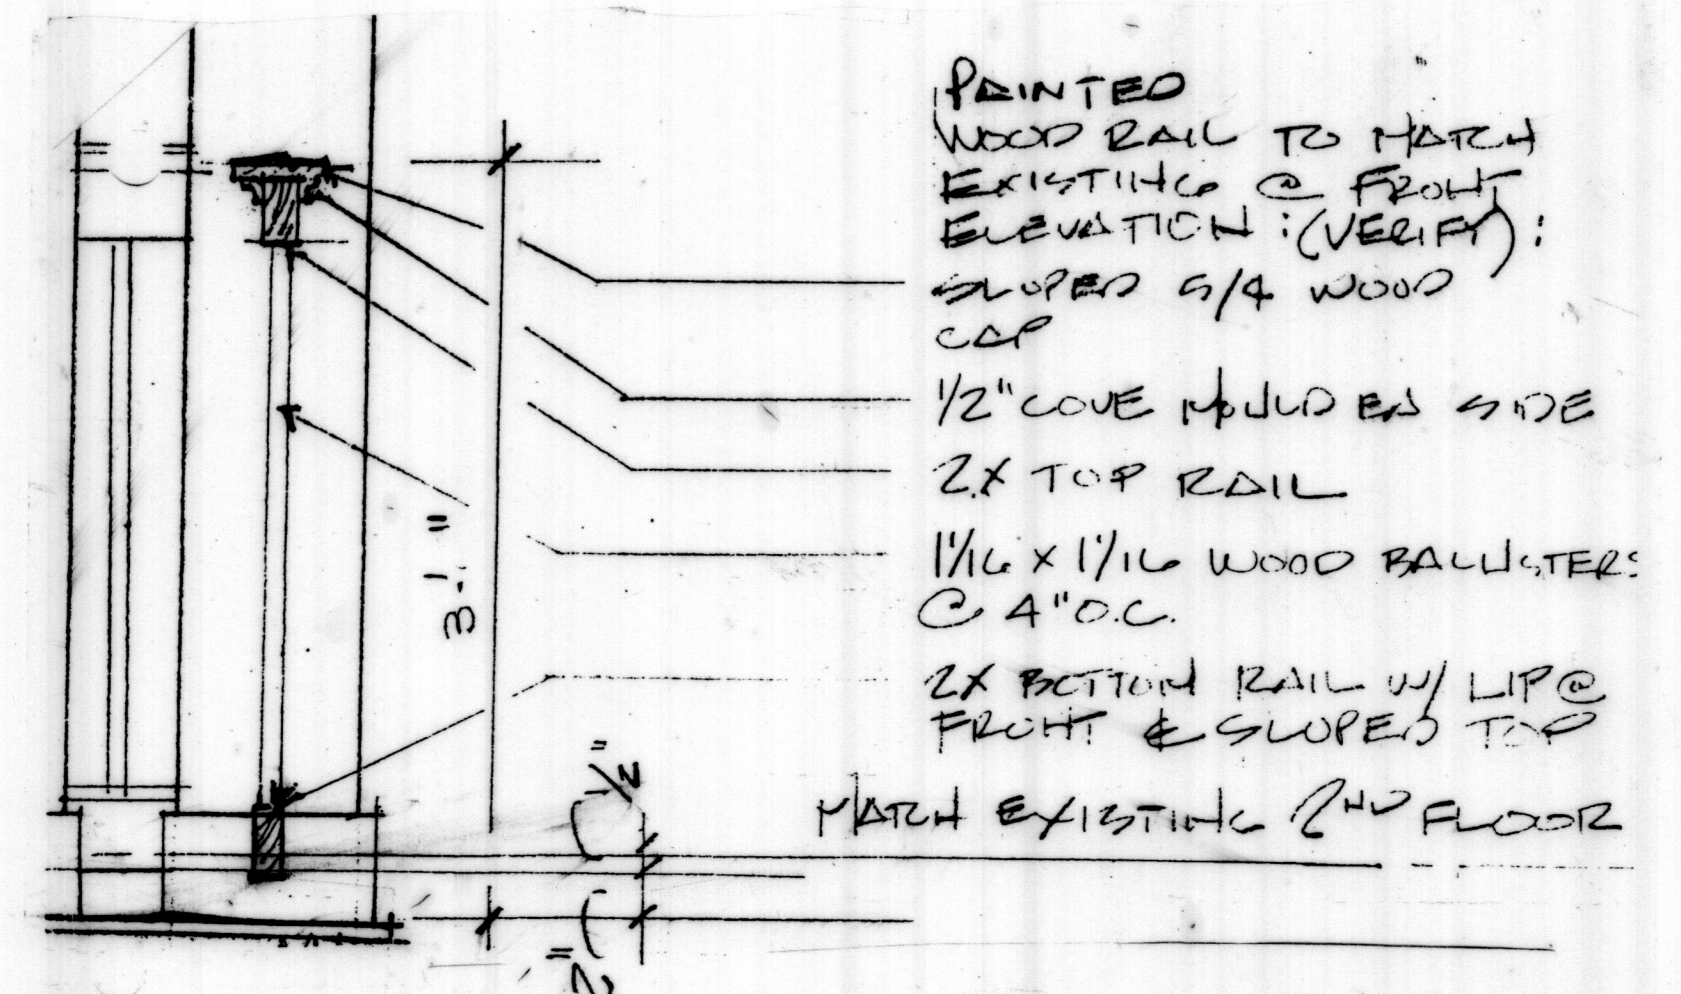 PAINTED
WOOD RAIL TO MATCH
EXISTING @ FRONT
ELEVATION :(VERIFY):
SLOPED 5/4 WOOD
CAP
1/2" COVE MOULD EA SIDE
2X TOP RAIL
1 1/16 X 1 1/16 WOOD BALUSTERS
@ 4" O.C.
2X BOTTOM RAIL W/ LIP @
FRONT & SLOPED TOP
MATCH EXISTING 2ND FLOOR
3'-1"
1/2"
2"